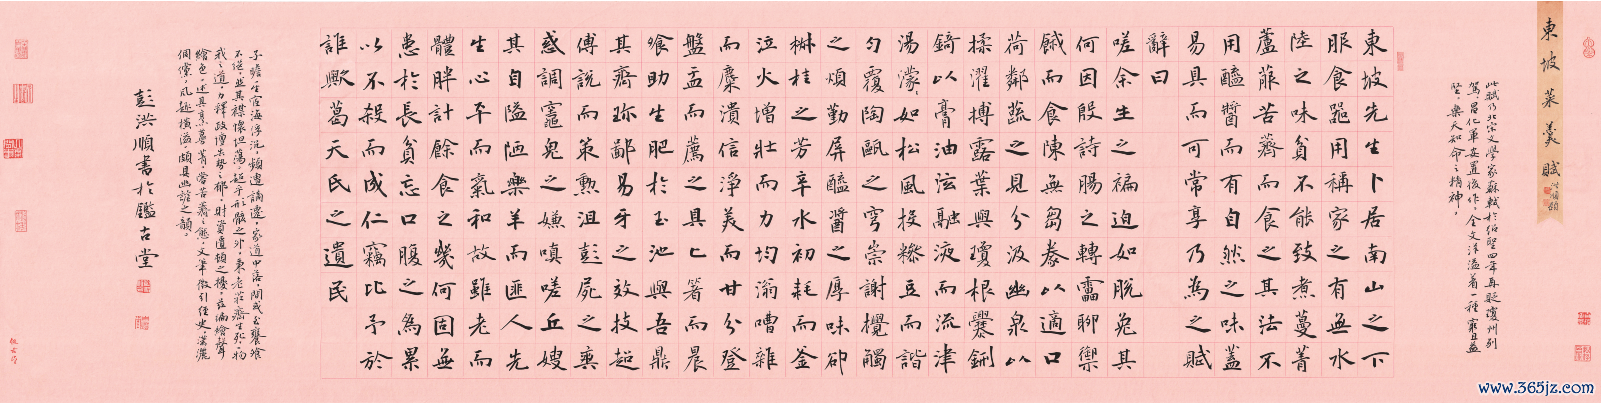 東坡菜羹賦
洪順題
此賦乃北宋文學家蘇軾於紹聖四年再貶瓊州別
駕、昌化軍安置後作。全文洋溢着一種窮且益
堅、樂天知命之精神。
東坡先生卜居南山之下
服食器用稱家之有無水
陸之味貧不能致煮蔓菁
蘆菔苦薺而食之其法不
用醯醬而有自然之味蓋
易具而可常享乃為之賦
辭曰
嗟余生之褊迫如脫兔其
何因殷詩腸之轉雷聊禦
餓而食陳無芻豢以適口
荷鄰蔬之見分汲幽泉以
揉濯搏露葉與瓊根爨鉶
錡以膏油泫融液而流津
湯濛々如松風投糝豆而諧
勻覆陶甌之穹崇謝攪觸
之煩勤屏醯醬之厚味卻
椒桂之芳辛水初耗而釜
泣火增壯而力均滃嘈雜
而麋潰信淨美而甘分登
盤盂而薦之具匕箸而晨
飧助生肥於玉池與吾鼎
其齊珍鄙易牙之效技超
傅說而策勳沮彭屍之爽
惑調竈鬼之嫌嗔嗟丘嫂
其自隘陋樂羊而匪人先
生心平而氣和故雖老而
體胖計餘食之幾何固無
患於長貧忘口腹之為累
以不殺而成仁竊比予於
誰歟葛天氏之遺民
子瞻一生宦海浮沉，頻遭謫遷，家道中落，間或至饔飧
不濟，其襟懷坦蕩，超乎形骸之外，秉老莊齊生死、物
我之道，力釋政壇失勢之郁、財資匱頓之擾。茲編繪聲
繪色，述具烹蔓菁、嘗苦薺之態，文筆徵引經史，瀟灑
倜儻，風趣橫溢，頗具幽詼之韻。
彭洪順書於鑑古堂
www.365jz.com